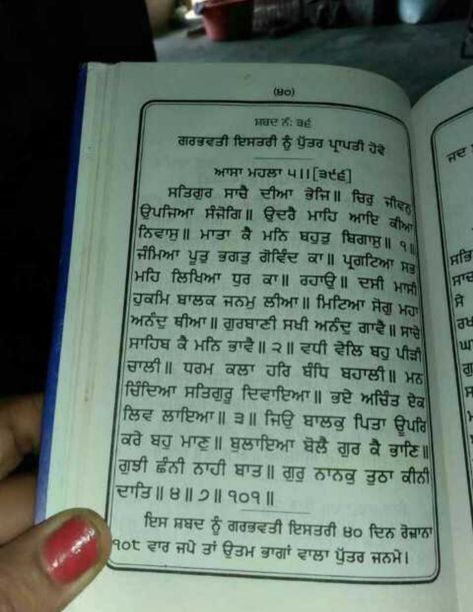 (੪੦)
ਸ਼ਬਦ ਨੰ: ੩੬
ਗਰਭਵਤੀ ਇਸਤਰੀ ਨੂੰ ਪੁੱਤਰ ਪ੍ਰਾਪਤੀ ਹੋਵੇ
ਆਸਾ ਮਹਲਾ ੫॥ [੩੯੬]
ਸਤਿਗੁਰ ਸਾਚੈ ਦੀਆ ਭੇਜਿ॥ ਚਿਰੁ ਜੀਵਨੁ
ਉਪਜਿਆ ਸੰਜੋਗਿ॥ ਉਦਰੈ ਮਾਹਿ ਆਇ ਕੀਆ
ਨਿਵਾਸੁ॥ ਮਾਤਾ ਕੈ ਮਨਿ ਬਹੁਤੁ ਬਿਗਾਸੁ॥ ੧॥
ਜੰਮਿਆ ਪੂਤੁ ਭਗਤੁ ਗੋਵਿੰਦ ਕਾ॥ ਪ੍ਰਗਟਿਆ ਸਭ
ਮਹਿ ਲਿਖਿਆ ਧੁਰ ਕਾ॥ ਰਹਾਉ॥ ਦਸੀ ਮਾਸੀ
ਹੁਕਮਿ ਬਾਲਕ ਜਨਮੁ ਲੀਆ॥ ਮਿਟਿਆ ਸੋਗੁ ਮਹਾ
ਅਨੰਦੁ ਥੀਆ॥ ਗੁਰਬਾਣੀ ਸਖੀ ਅਨੰਦੁ ਗਾਵੈ॥ ਸਾਚੇ
ਸਾਹਿਬ ਕੈ ਮਨਿ ਭਾਵੈ॥ ੨॥ ਵਧੀ ਵੇਲਿ ਬਹੁ ਪੀੜੀ
ਚਾਲੀ॥ ਧਰਮ ਕਲਾ ਹਰਿ ਬੰਧਿ ਬਹਾਲੀ॥ ਮਨ
ਚਿੰਦਿਆ ਸਤਿਗੁਰੂ ਦਿਵਾਇਆ॥ ਭਏ ਅਚਿੰਤ ਏਕ
ਲਿਵ ਲਾਇਆ॥ ੩॥ ਜਿਉ ਬਾਲਕੁ ਪਿਤਾ ਊਪਰਿ
ਕਰੇ ਬਹੁ ਮਾਣੁ॥ ਬੁਲਾਇਆ ਬੋਲੈ ਗੁਰ ਕੈ ਭਾਣਿ॥
ਗੁਝੀ ਛੰਨੀ ਨਾਹੀ ਬਾਤ॥ ਗੁਰੁ ਨਾਨਕੁ ਤੁਠਾ ਕੀਨੀ
ਦਾਤਿ॥ ੪॥ ੭॥ ੧੦੧॥
ਇਸ ਸ਼ਬਦ ਨੂੰ ਗਰਭਵਤੀ ਇਸਤਰੀ ੪੦ ਦਿਨ ਰੋਜ਼ਾਨਾ
੧੦੮ ਵਾਰ ਜਪੇ ਤਾਂ ਉਤਮ ਭਾਗਾਂ ਵਾਲਾ ਪੁੱਤਰ ਜਨਮੇ।
ਜਦ